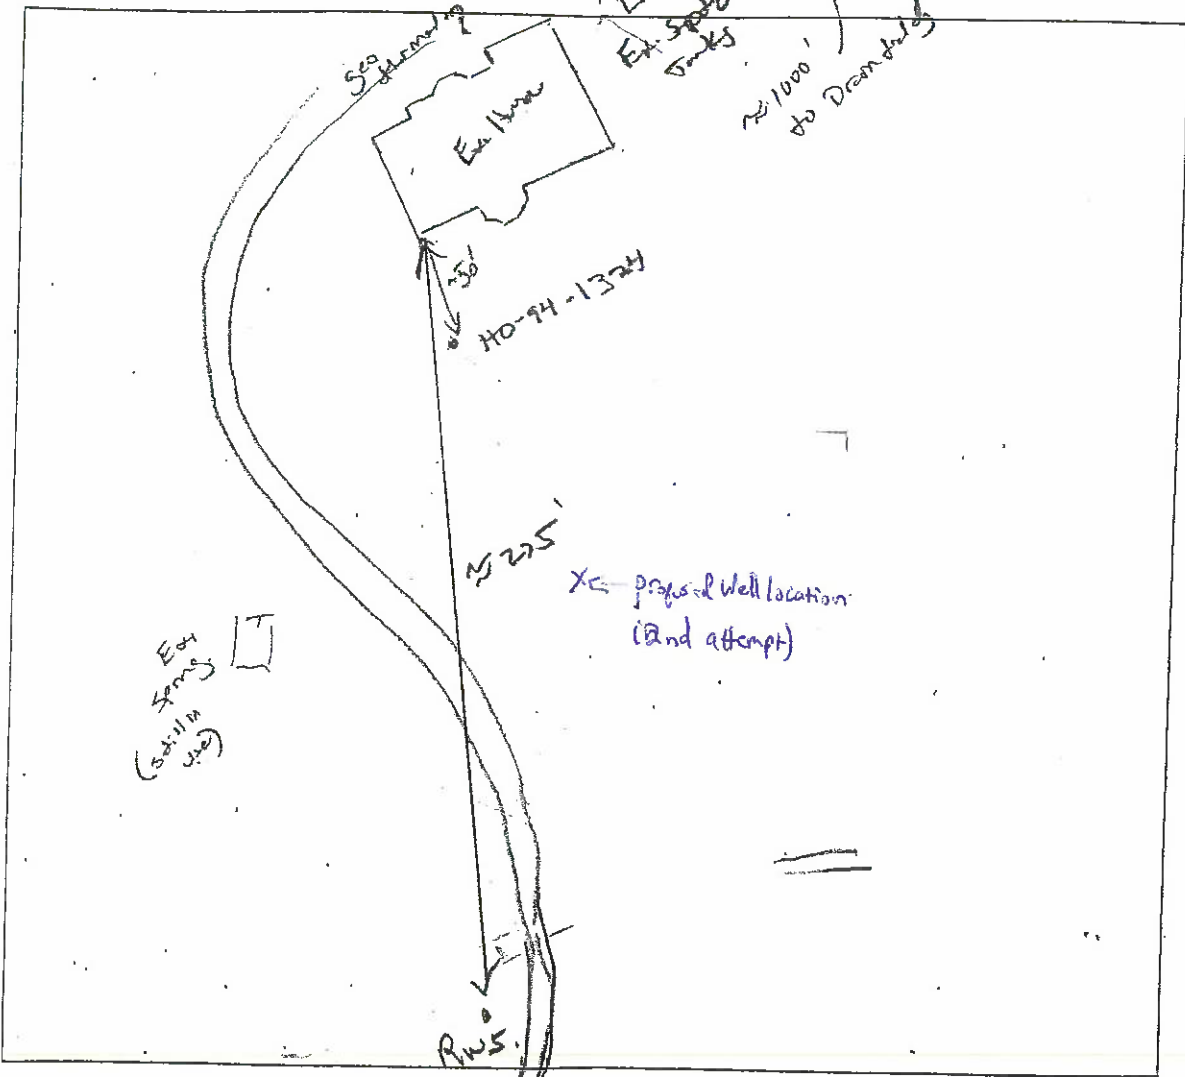 Geo
thermal ?
Ext. Septic
Tanks
≈ 1000'
to Drainfield
Ex. House
~50'
HO-94-1324
≈ 225'
X← proposed Well location
(2nd attempt)
Ext
Spring
(still in
use)
RW5.